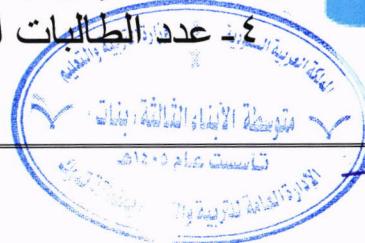 ٤- عدد الطالبات
المملكة العربية السعودية وزارة التربية والتعليم
متوسطة الأبناء الثالثة بنات
تأسست عام ١٤٠٥هـ
الإدارة العامة للتربية